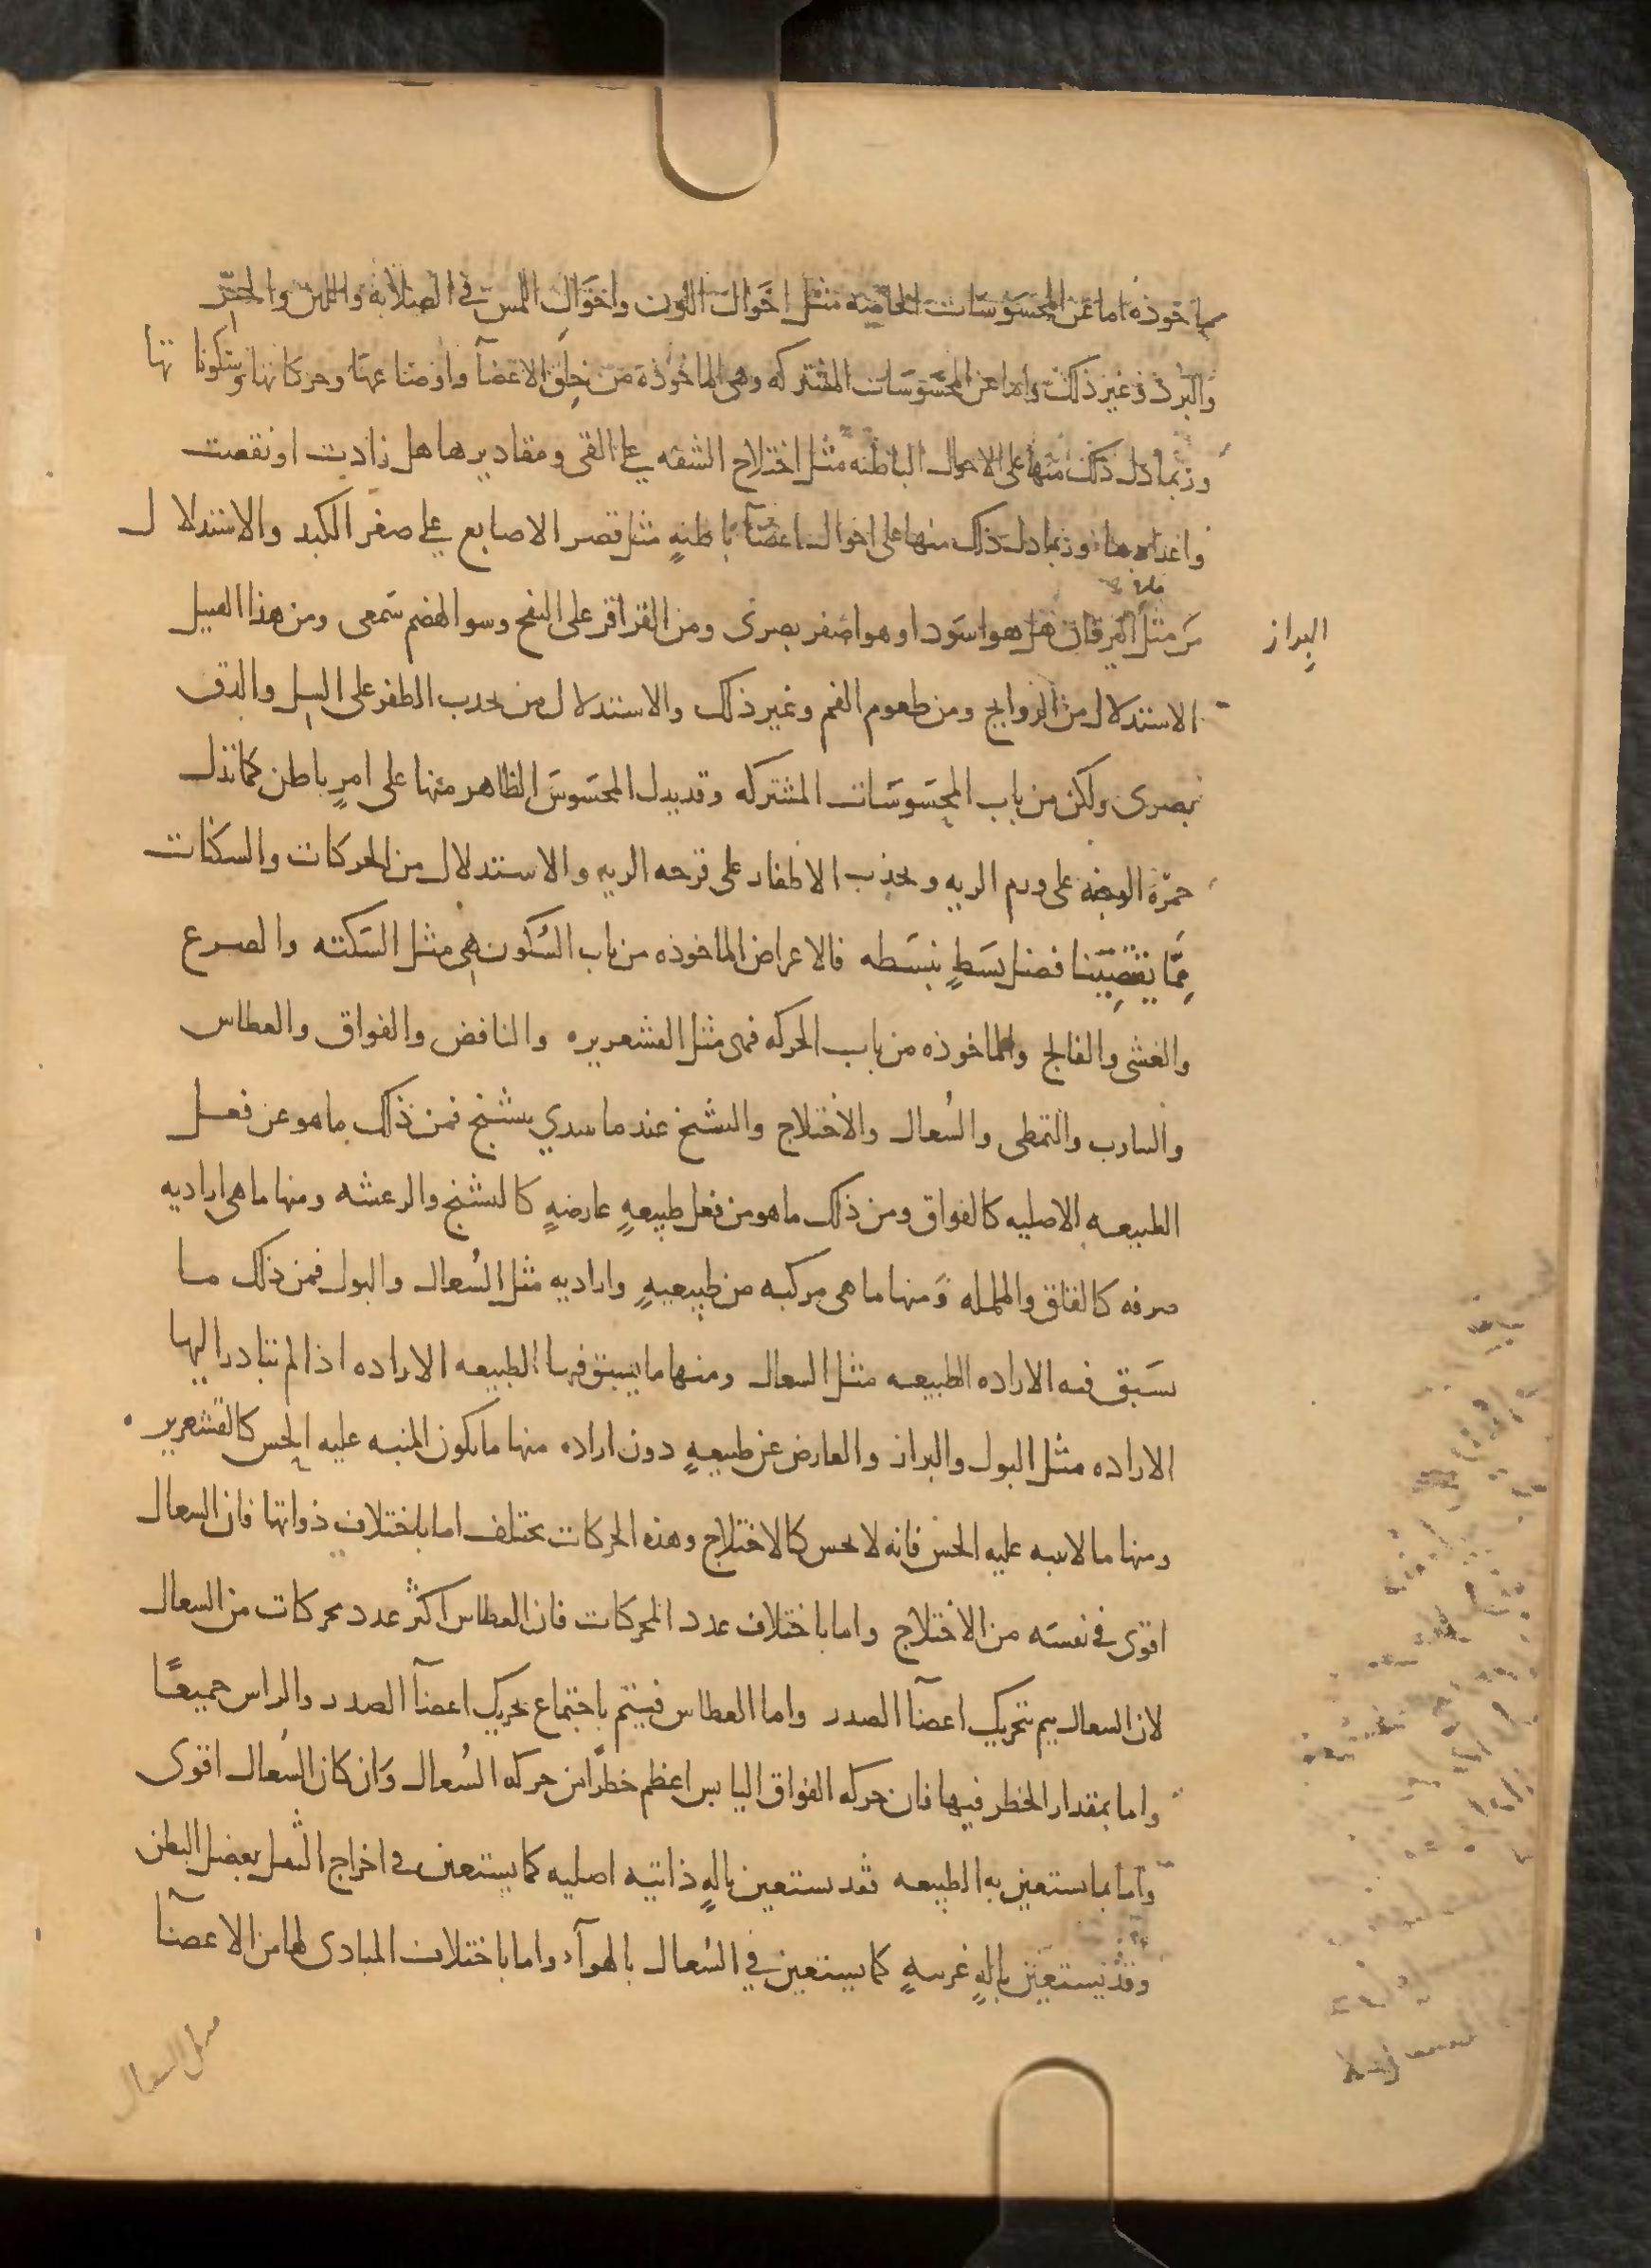 ماخوذه اما عن المحسوسات الخاصه مثل احوال اللون واحوال اللمس في الصلابه واللين والحر
والبرد وغير ذلك واما عن المحسوسات المشتركه وهى الماخوذة من خلق الاعضآ واوضاعها وحركاتها وسكوناتها
وربما دل ذلك منها على الاحوال الباطنه مثل اختلاج الشفه على القى ومقاديرها هل زادت او نقصت
واعدادها وربما دل ذلك منها على احوال اعضآ باطنهٍ مثل قصر الاصابع على صغر الكبد والاستدلال
البراز
من مثل اليرقان هل هو اسود او هو اصفر بصرى ومن القراقر على النفخ وسو الهضم سمعى ومن هذا القبيل
الاستدلال من الروايح ومن طعوم الفم وغير ذلك والاستدلال من تحدب الظفر على السل والدق
بصرى ولكن من باب المحسوسات المشتركه وقد يدل المحسوس الظاهر منها على امرٍ باطن كما تدل
حمرة الوجنه على ورم الريه وتحدب الاظفار على قرحه الريه والاستدلال من الحركات والسكنات
مما يقتضينا فضل بسطٍ نبسطه فالاعراض الماخوذه من باب السكون هى مثل السكته والصرع
والغشى والفالج والماخوذه من باب الحركه فهى مثل القشعريره والنافض والفواق والعطاس
والتاوب والتمطى والسُعال والاختلاج والتشنج عند ما يبتدي يتشنج فمن ذلك ما هو عن فعل
الطبيعه الاصليه كالفواق ومن ذلك ما هو من فعل طبيعهٍ عارضهٍ كالتشنج والرعشه ومنها ما هى اراديه
صرفه كالقلق والململه ومنها ما هى مركبه من طبيعيهٍ واراديه مثل السُعال والبول فمن ذلك ما
يسبق فيه الاراده الطبيعه مثل السعال ومنها ما يسبق فيها الطبيعه الاراده اذا لم تبادر اليها
الاراده مثل البول والبراز والعارض عن طبيعهٍ دون اراده منها ما يكون المنبه عليه الحس كالقشعريره
ومنها ما لا ينبه عليه الحس فانه لا يحس كالاختلاج وهذه الحركات تختلف اما باختلاف ذواتها فان السعال
اقوى في نفسه من الاختلاج واما باختلاف عدد المحركات فان العطاس اكثر عدد محركات من السعال
لان السعال يتم بتحريك اعضآ الصدر واما العطاس فيتم باجتماع تحريك اعضآ الصدر والراس جميعًا
واما بمقدار الخطر فيها فان حركه الفواق اليابس اعظم خطرًا من حركه السُعال وان كان السُعال اقوى
واما بما تستعين به الطبيعه فقد تستعين بالهٍ ذاتيه اصليه كما يستعين في اخراج الثفل بعضل البطن
وقد يستعين بالهٍ غريبهٍ كما يستعين في السُعال بالهوآء واما باختلاف المبادى لها من الاعضآ
مثل السعال